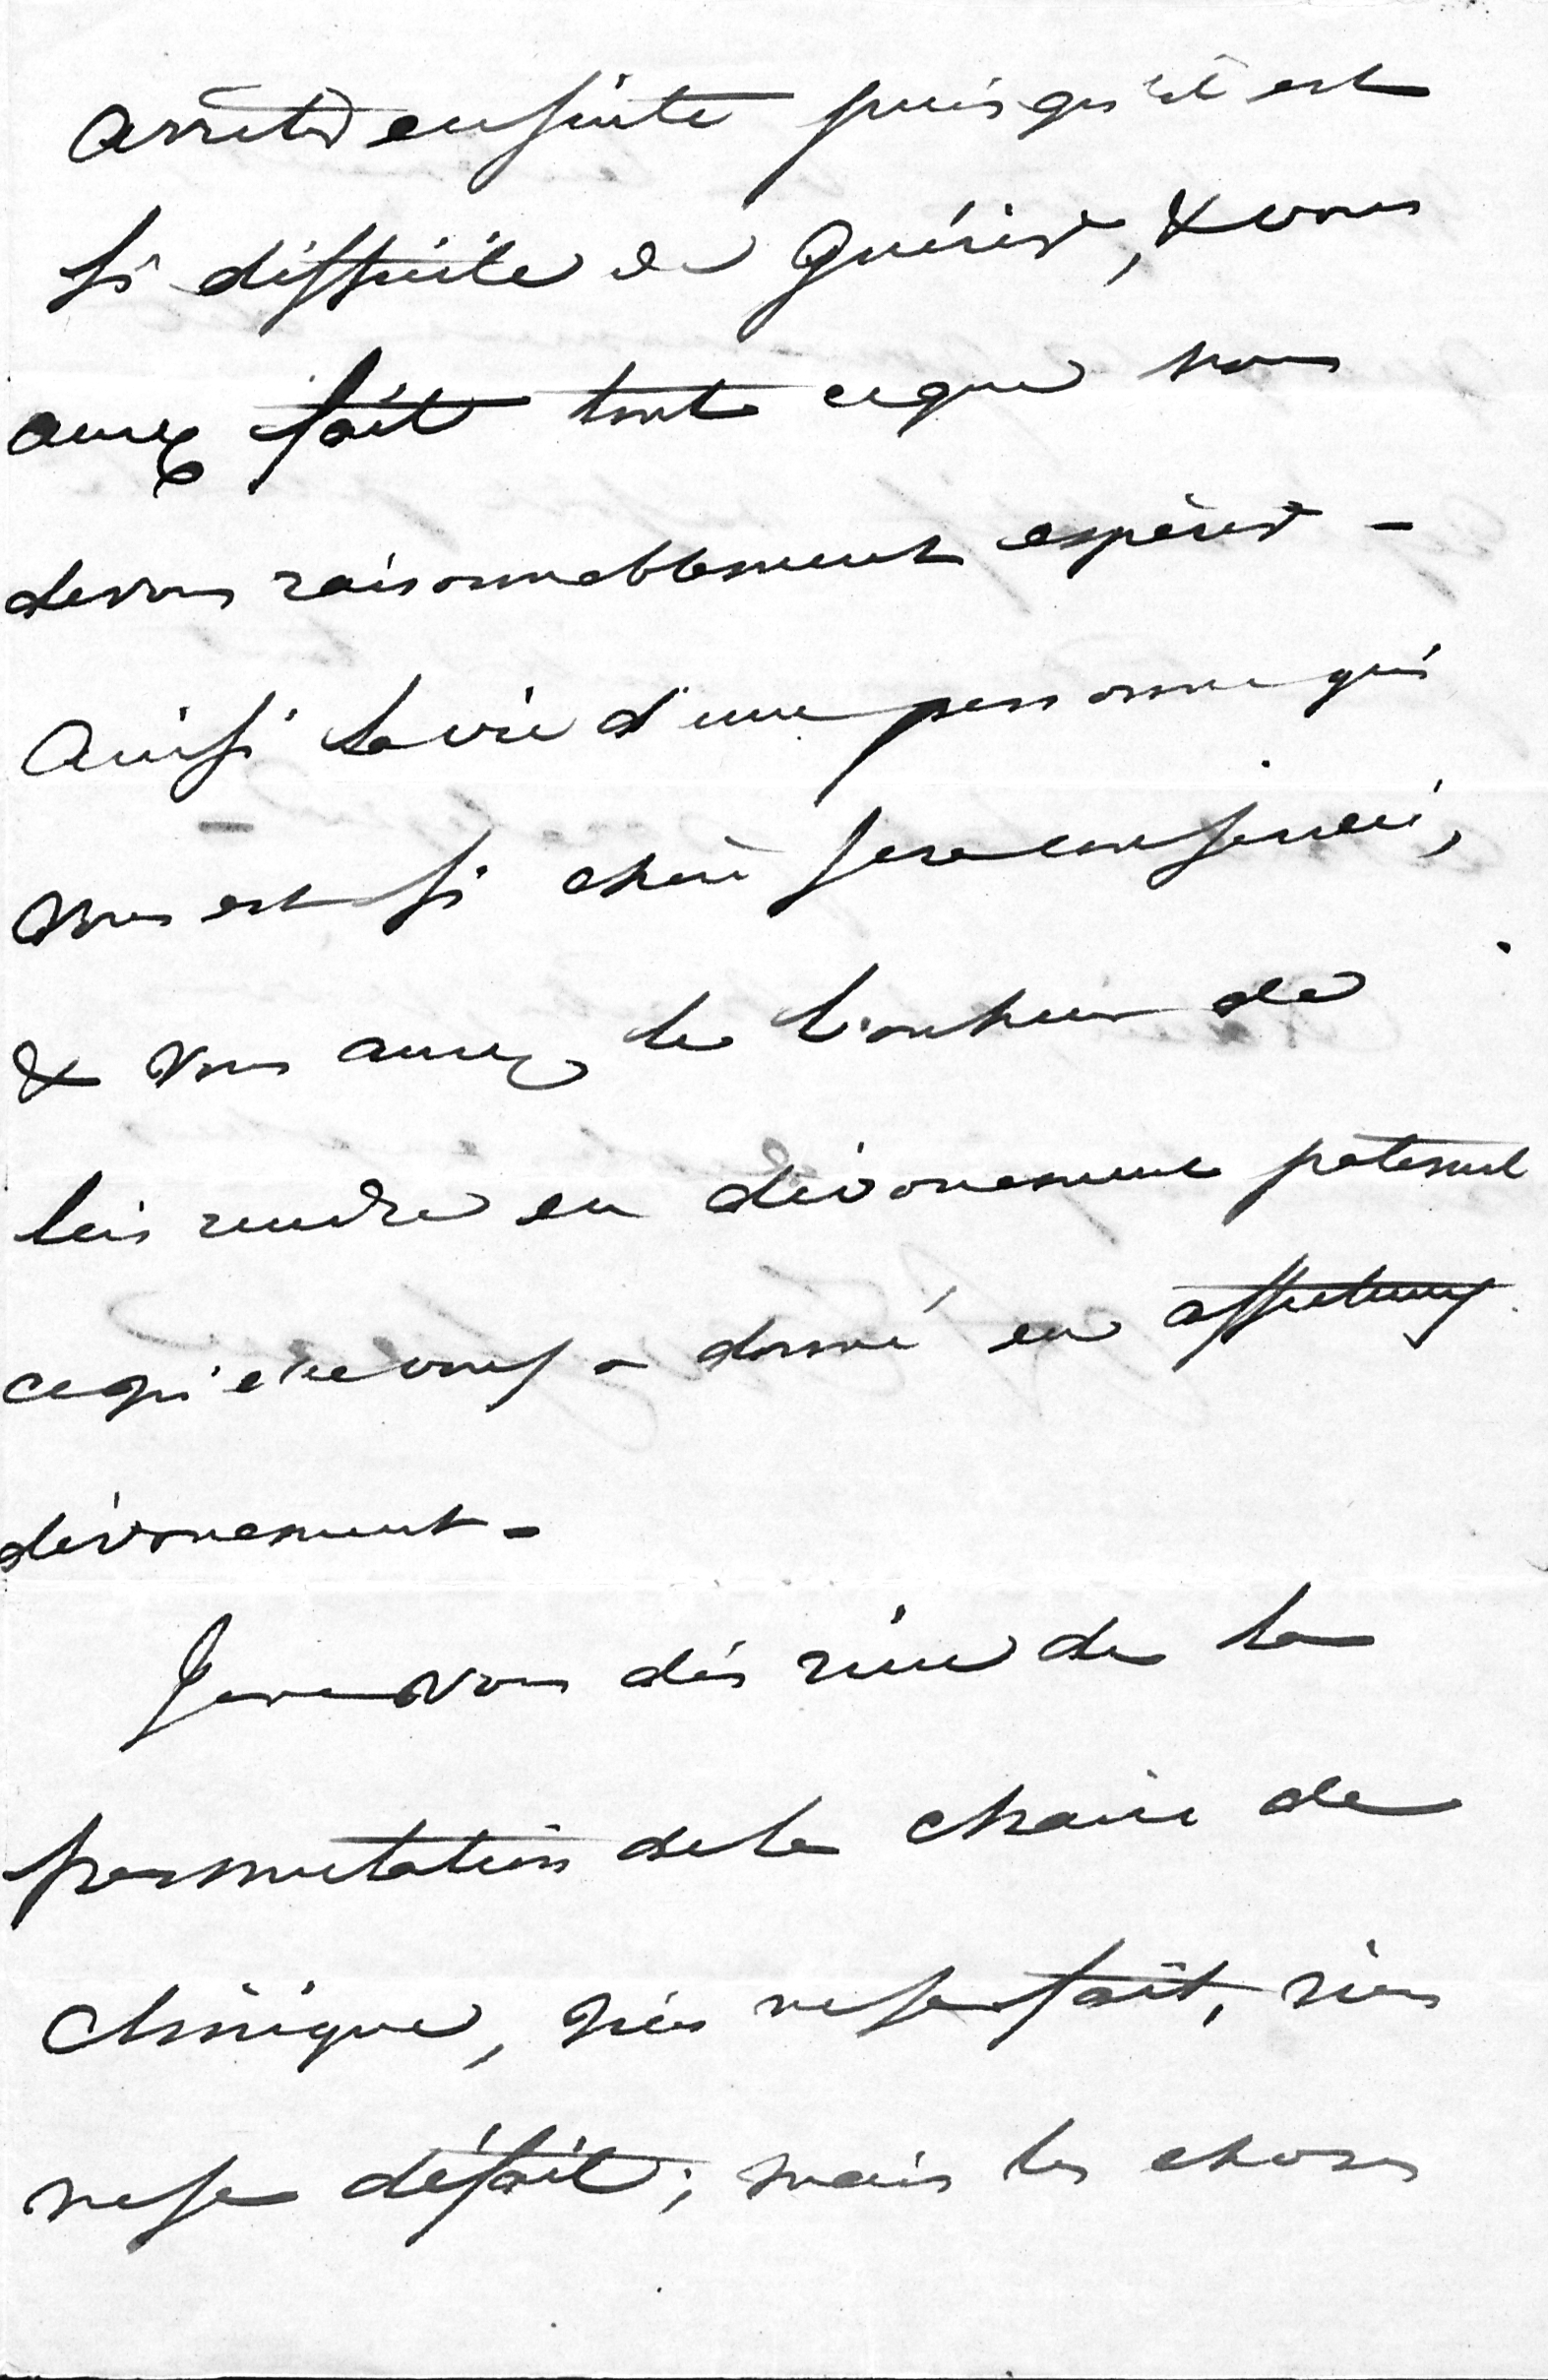 arrêter ensuite puisqu'il est
si difficile de guérir, & vous
aurez fait tout ce que nous
devons raisonnablement espérer -
Ainsi la vie d'une personne qui
vous est si chère sera conservée,
& vous aurez le bonheur de
lui rendre en dévouement paternel
ce qu'elle vous a donné en
dévouement -
Je ne vous dis rien de la
permutation de la chaire de
clinique, rien ne se fait, rien
ne se défait ; mais les choses